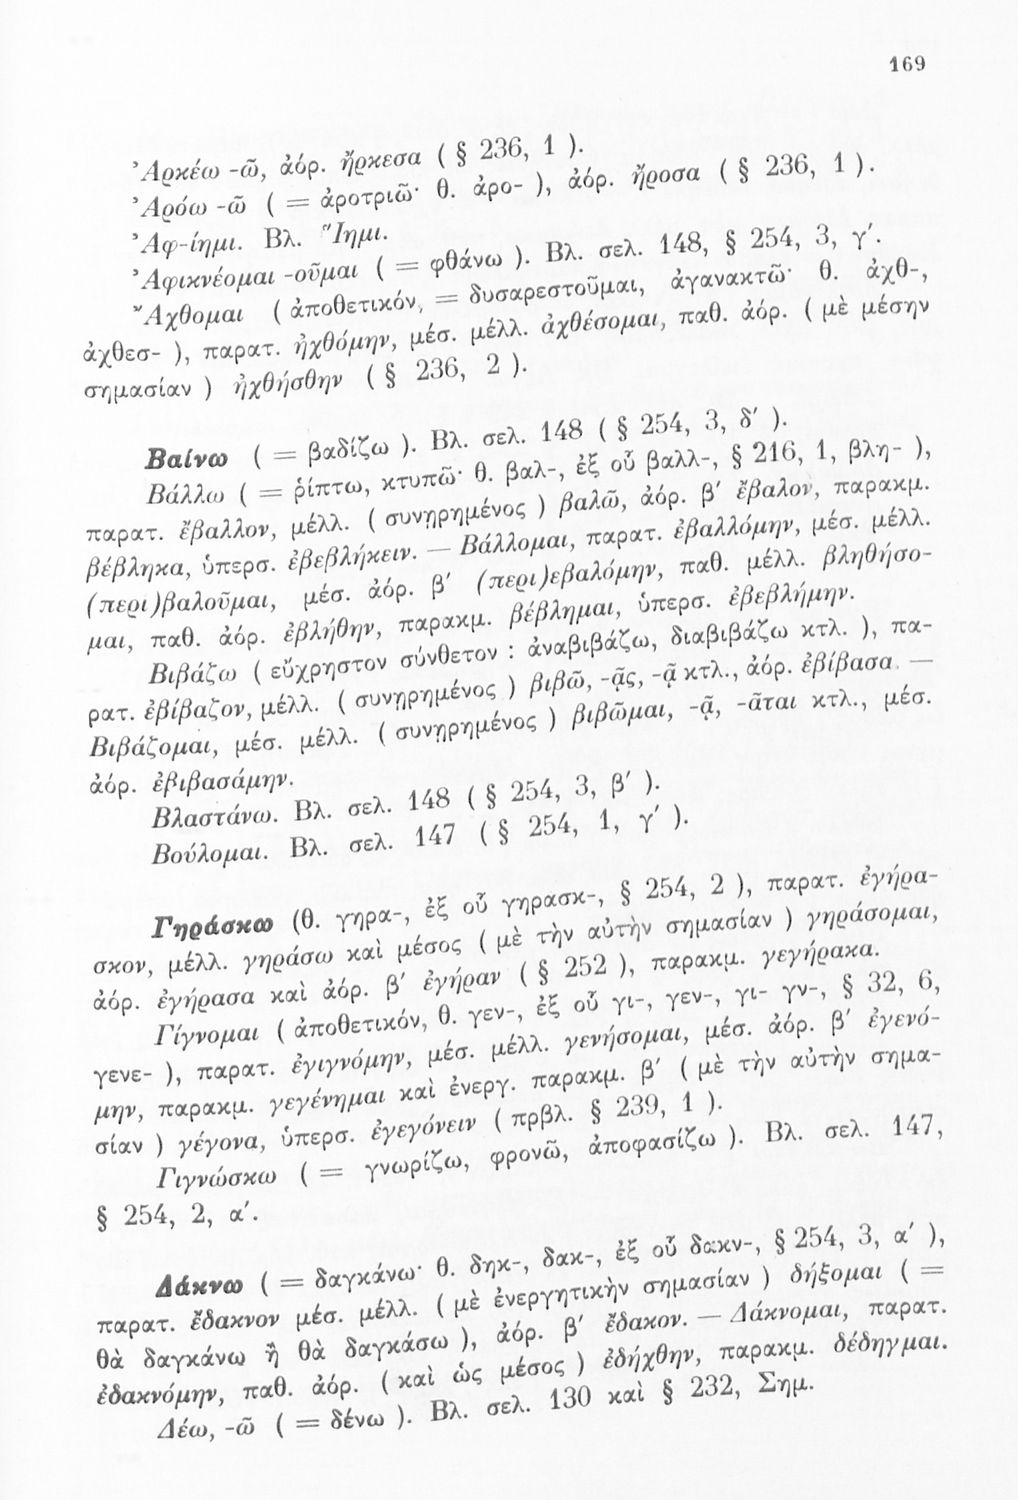 169
Ἀρκέω -ῶ, ἀόρ. ἤρκεσα ( § 236, 1 ).
Ἀρόω -ῶ ( = ἀροτριῶ· θ. ἀρο- ), ἀόρ. ἤροσα ( § 236, 1 ).
Ἀφ-ίημι. Βλ. Ἵημι.
Ἀφικνέομαι -οῦμαι ( = φθάνω ). Βλ. σελ. 148, § 254, 3, γ΄.
Ἄχθομαι ( ἀποθετικόν, = δυσαρεστοῦμαι, ἀγανακτῶ· θ. ἀχθ-,
ἀχθεσ- ), παρατ. ἠχθόμην, μέσ. μέλλ. ἀχθέσομαι, παθ. ἀόρ. ( μὲ μέσην
σημασίαν ) ἠχθήσθην ( § 236, 2 ).
Βαίνω ( = βαδίζω ). Βλ. σελ. 148 ( § 254, 3, δ΄ ).
Βάλλω ( = ῥίπτω, κτυπῶ· θ. βαλ-, ἐξ οὗ βαλλ-, § 216, 1, βλη- ),
παρατ. ἔβαλλον, μέλλ. ( συνῃρημένος ) βαλῶ, ἀόρ. β΄ ἔβαλον, παρακμ.
βέβληκα, ὑπερσ. ἐβεβλήκειν. — Βάλλομαι, παρατ. ἐβαλλόμην, μέσ. μέλλ.
(περι)βαλοῦμαι, μέσ. ἀόρ. β΄ (περι)εβαλόμην, παθ. μέλλ. βληθήσο-
μαι, παθ. ἀόρ. ἐβλήθην, παρακμ. βέβλημαι, ὑπερσ. ἐβεβλήμην.
Βιβάζω ( εὔχρηστον σύνθετον : ἀναβιβάζω, διαβιβάζω κτλ. ), πα-
ρατ. ἐβίβαζον, μέλλ. ( συνῃρημένος ) βιβῶ, -ᾷς, -ᾷ κτλ., ἀόρ. ἐβίβασα. —
Βιβάζομαι, μέσ. μέλλ. ( συνῃρημένος ) βιβῶμαι, -ᾷ, -ᾶται κτλ., μέσ.
ἀόρ. ἐβιβασάμην.
Βλαστάνω. Βλ. σελ. 148 ( § 254, 3, β΄ ).
Βούλομαι. Βλ. σελ. 147 ( § 254, 1, γ΄ ).
Γηράσκω (θ. γηρα-, ἐξ οὗ γηρασκ-, § 254, 2 ), παρατ. ἐγήρα-
σκον, μέλλ. γηράσω καὶ μέσος ( μὲ τὴν αὐτὴν σημασίαν ) γηράσομαι,
ἀόρ. ἐγήρασα καὶ ἀόρ. β΄ ἐγήραν ( § 252 ), παρακμ. γεγήρακα.
Γίγνομαι ( ἀποθετικόν, θ. γεν-, ἐξ οὗ γι-, γεν-, γι- γν-, § 32, 6,
γενε- ), παρατ. ἐγιγνόμην, μέσ. μέλλ. γενήσομαι, μέσ. ἀόρ. β΄ ἐγενό-
μην, παρακμ. γεγένημαι καὶ ἐνεργ. παρακμ. β΄ ( μὲ τὴν αὐτὴν σημα-
σίαν ) γέγονα, ὑπερσ. ἐγεγόνειν ( πρβλ. § 239, 1 ).
Γιγνώσκω ( = γνωρίζω, φρονῶ, ἀποφασίζω ). Βλ. σελ. 147,
§ 254, 2, α΄.
Δάκνω ( = δαγκάνω· θ. δηκ-, δακ-, ἐξ οὗ δακν-, § 254, 3, α΄ ),
παρατ. ἔδακνον μέσ. μέλλ. ( μὲ ἐνεργητικὴν σημασίαν ) δήξομαι ( =
θὰ δαγκάνω ἢ θὰ δαγκάσω ), ἀόρ. β΄ ἔδακον. — Δάκνομαι, παρατ.
ἐδακνόμην, παθ. ἀόρ. ( καὶ ὡς μέσος ) ἐδήχθην, παρακμ. δέδηγμαι.
Δέω, -ῶ ( = δένω ). Βλ. σελ. 130 καὶ § 232, Σημ.